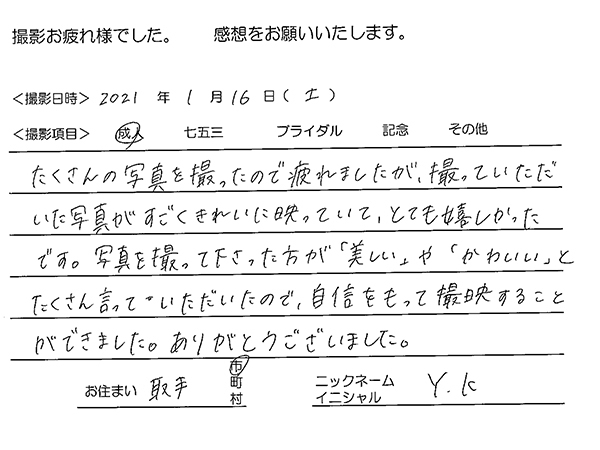 撮影お疲れ様でした。 感想をお願いいたします。
<撮影日時> 2021 年 1 月 16 日 ( 土 )
<撮影項目> 成人 七五三 ブライダル 記念 その他
たくさんの写真を撮ったので疲れましたが、撮っていただ
いた写真がすごくきれいに映っていて、とても嬉しかった
です。写真を撮って下さった方が「美しい」や「かわいい」と
たくさん言っていただいたので、自信をもって撮映すること
ができました。ありがとうございました。
お住まい 取手 市 町 村 ニックネーム イニシャル Y.K